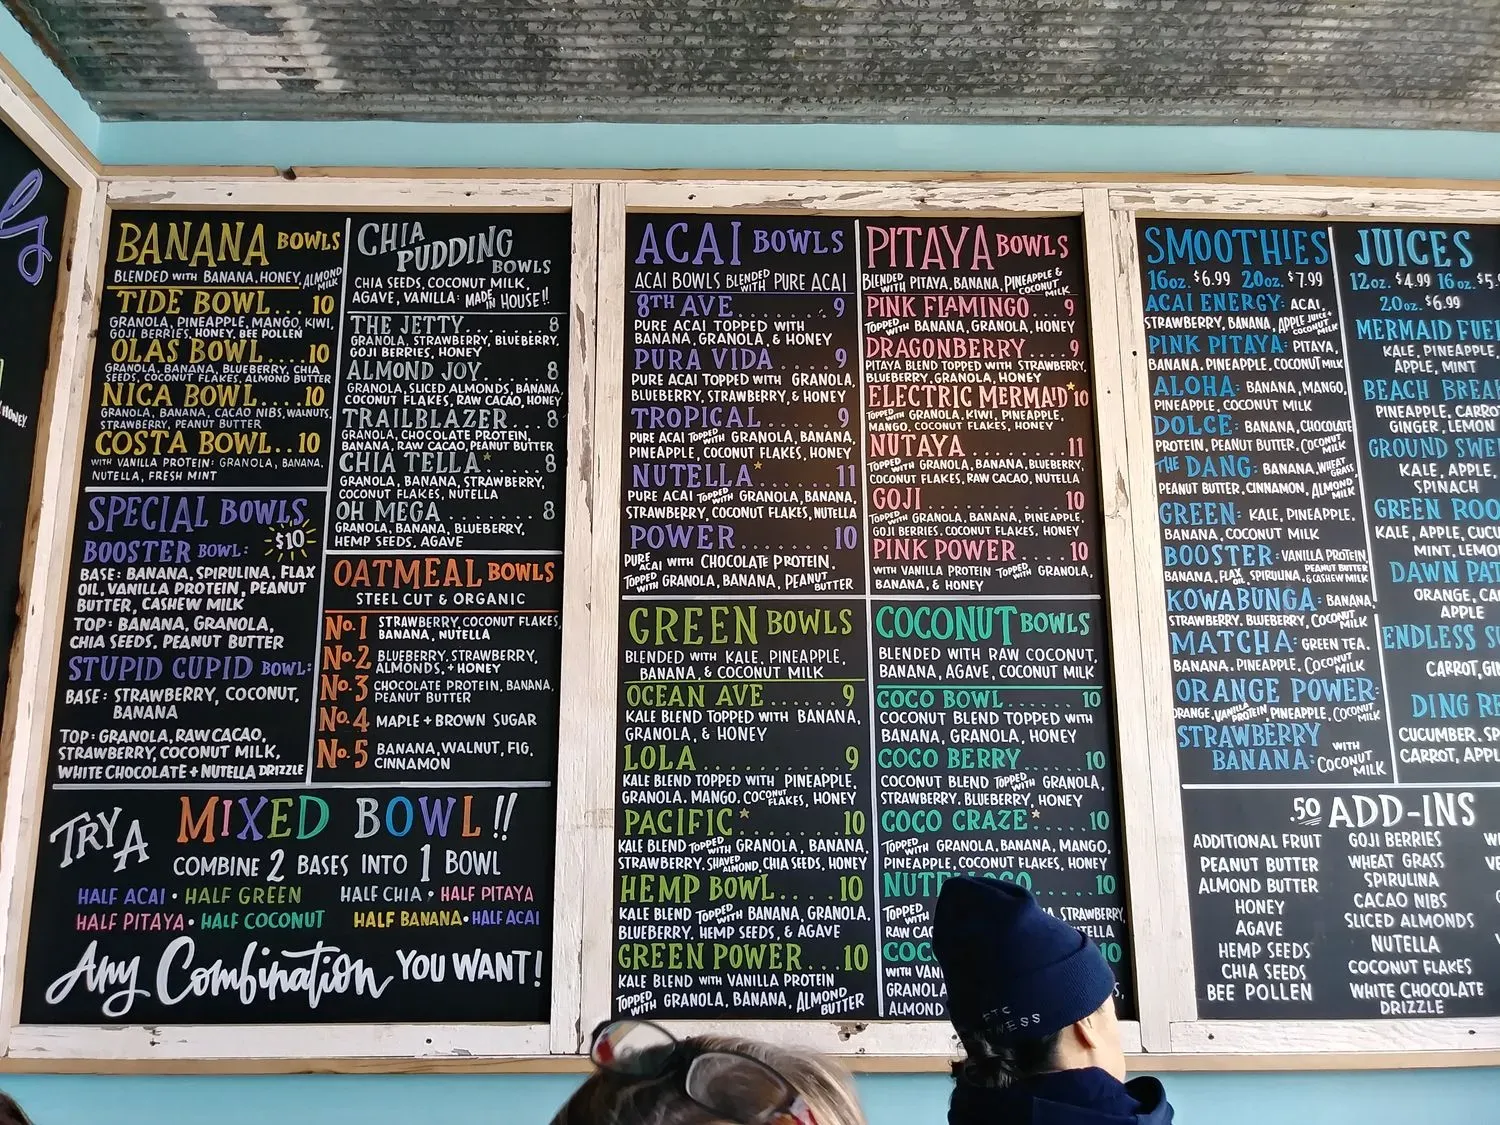 BANANA BOWLS
BLENDED WITH BANANA, HONEY, ALMOND MILK
TIDE BOWL... 10
GRANOLA, PINEAPPLE, MANGO, KIWI,
GOJI BERRIES, HONEY, BEE POLLEN
OLAS BOWL.... 10
GRANOLA, BANANA, BLUEBERRY, CHIA
SEEDS, COCONUT FLAKES, ALMOND BUTTER
NICA BOWL... 10
GRANOLA, BANANA, CACAO NIBS, WALNUTS,
STRAWBERRY, PEANUT BUTTER
COSTA BOWL.. 10
WITH VANILLA PROTEIN: GRANOLA, BANANA,
NUTELLA, FRESH MINT
SPECIAL BOWLS
$10
BOOSTER BOWL:
BASE: BANANA, SPIRULINA, FLAX
OIL, VANILLA PROTEIN, PEANUT
BUTTER, CASHEW MILK
TOP: BANANA, GRANOLA,
CHIA SEEDS, PEANUT BUTTER
STUPID CUPID BOWL:
BASE: STRAWBERRY, COCONUT,
BANANA
TOP: GRANOLA, RAW CACAO,
STRAWBERRY, COCONUT MILK,
WHITE CHOCOLATE + NUTELLA DRIZZLE
CHIA PUDDING BOWLS
CHIA SEEDS, COCONUT MILK,
AGAVE, VANILLA: MADE IN HOUSE!!
THE JETTY........ 8
GRANOLA, STRAWBERRY, BLUEBERRY,
GOJI BERRIES, HONEY
ALMOND JOY..... 8
GRANOLA, SLICED ALMONDS, BANANA,
COCONUT FLAKES, RAW CACAO, HONEY
TRAILBLAZER... 8
GRANOLA, CHOCOLATE PROTEIN,
BANANA, RAW CACAO, PEANUT BUTTER
CHIA TELLA*..... 8
GRANOLA, BANANA, STRAWBERRY,
COCONUT FLAKES, NUTELLA
OH MEGA........ 8
GRANOLA, BANANA, BLUEBERRY,
HEMP SEEDS, AGAVE
OATMEAL BOWLS
STEEL CUT & ORGANIC
No.1 STRAWBERRY, COCONUT FLAKES,
BANANA, NUTELLA
No.2 BLUEBERRY, STRAWBERRY,
ALMONDS, + HONEY
No.3 CHOCOLATE PROTEIN, BANANA,
PEANUT BUTTER
No.4 MAPLE + BROWN SUGAR
No.5 BANANA, WALNUT, FIG,
CINNAMON
TRY A MIXED BOWL!!
COMBINE 2 BASES INTO 1 BOWL
HALF ACAI • HALF GREEN HALF CHIA • HALF PITAYA
HALF PITAYA • HALF COCONUT HALF BANANA • HALF ACAI
Any Combination YOU WANT!
ACAI BOWLS
ACAI BOWLS BLENDED WITH PURE ACAI
8TH AVE........ 9
PURE ACAI TOPPED WITH
BANANA, GRANOLA, & HONEY
PURA VIDA..... 9
PURE ACAI TOPPED WITH GRANOLA,
BLUEBERRY, STRAWBERRY, & HONEY
TROPICAL...... 9
PURE ACAI TOPPED WITH GRANOLA, BANANA,
PINEAPPLE, COCONUT FLAKES, HONEY
NUTELLA*..... 11
PURE ACAI TOPPED WITH GRANOLA, BANANA,
STRAWBERRY, COCONUT FLAKES, NUTELLA
POWER......... 10
PURE ACAI WITH CHOCOLATE PROTEIN,
TOPPED WITH GRANOLA, BANANA, PEANUT BUTTER
PITAYA BOWLS
BLENDED WITH PITAYA, BANANA, PINEAPPLE & COCONUT MILK
PINK FLAMINGO... 9
TOPPED WITH BANANA, GRANOLA, HONEY
DRAGONBERRY.... 9
PITAYA BLEND TOPPED WITH STRAWBERRY,
BLUEBERRY, GRANOLA, HONEY
ELECTRIC MERMAID* 10
TOPPED WITH GRANOLA, KIWI, PINEAPPLE,
MANGO, COCONUT FLAKES, HONEY
NUTAYA......... 11
TOPPED WITH GRANOLA, BANANA, BLUEBERRY,
COCONUT FLAKES, RAW CACAO, NUTELLA
GOJI............ 10
TOPPED WITH GRANOLA, BANANA, PINEAPPLE,
GOJI BERRIES, COCONUT FLAKES, HONEY
PINK POWER..... 10
WITH VANILLA PROTEIN TOPPED WITH GRANOLA,
BANANA, & HONEY
GREEN BOWLS
BLENDED WITH KALE, PINEAPPLE,
BANANA, & COCONUT MILK
OCEAN AVE..... 9
KALE BLEND TOPPED WITH BANANA,
GRANOLA, & HONEY
LOLA............ 9
KALE BLEND TOPPED WITH PINEAPPLE,
GRANOLA, MANGO, COCONUT FLAKES, HONEY
PACIFIC*....... 10
KALE BLEND TOPPED WITH GRANOLA, BANANA,
STRAWBERRY, SHAVED ALMOND, CHIA SEEDS, HONEY
HEMP BOWL.... 10
KALE BLEND TOPPED WITH BANANA, GRANOLA,
BLUEBERRY, HEMP SEEDS, & AGAVE
GREEN POWER... 10
KALE BLEND WITH VANILLA PROTEIN
TOPPED WITH GRANOLA, BANANA, ALMOND BUTTER
COCONUT BOWLS
BLENDED WITH RAW COCONUT,
BANANA, AGAVE, COCONUT MILK
COCO BOWL...... 10
COCONUT BLEND TOPPED WITH
BANANA, GRANOLA, HONEY
COCO BERRY..... 10
COCONUT BLEND TOPPED WITH GRANOLA,
STRAWBERRY, BLUEBERRY, HONEY
COCO CRAZE*.... 10
TOPPED WITH GRANOLA, BANANA, MANGO,
PINEAPPLE, COCONUT FLAKES, HONEY
10
TOPPED WITH STRAWBERRY,
RAW
COCO 10
WITH
ALMOND
SMOOTHIES
16oz. $6.99 20oz. $7.99
ACAI ENERGY: ACAI,
STRAWBERRY, BANANA, APPLE JUICE + COCONUT MILK
PINK PITAYA: PITAYA,
BANANA, PINEAPPLE, COCONUT MILK
ALOHA: BANANA, MANGO,
PINEAPPLE, COCONUT MILK
DOLCE: BANANA, CHOCOLATE
PROTEIN, PEANUT BUTTER, COCONUT MILK
THE DANG: BANANA, WHEAT GRASS
PEANUT BUTTER, CINNAMON, ALMOND MILK
GREEN: KALE, PINEAPPLE,
BANANA, COCONUT MILK
BOOSTER: VANILLA PROTEIN, PEANUT BUTTER
BANANA, FLAX OIL, SPIRULINA, & CASHEW MILK
KOWABUNGA: BANANA,
STRAWBERRY, BLUEBERRY, COCONUT MILK
MATCHA: GREEN TEA,
BANANA, PINEAPPLE, COCONUT MILK
ORANGE POWER:
ORANGE, VANILLA PROTEIN, PINEAPPLE, COCONUT MILK
STRAWBERRY
BANANA: WITH COCONUT MILK
JUICES
12oz. $4.99 16oz.
20oz. $6.99
MERMAID
KALE, PINEAPPLE,
APPLE, MINT
BEACH
PINEAPPLE,
GINGER, LEMON
GROUND
KALE, APPLE,
SPINACH
GREEN
KALE, APPLE,
MINT,
DAWN
ORANGE,
APPLE
ENDLESS
CARROT,
DING
CUCUMBER,
CARROT,
.50 ADD-INS
ADDITIONAL FRUIT
PEANUT BUTTER
ALMOND BUTTER
HONEY
AGAVE
HEMP SEEDS
CHIA SEEDS
BEE POLLEN
GOJI BERRIES
WHEAT GRASS
SPIRULINA
CACAO NIBS
SLICED ALMONDS
NUTELLA
COCONUT FLAKES
WHITE CHOCOLATE
DRIZZLE
HONEY